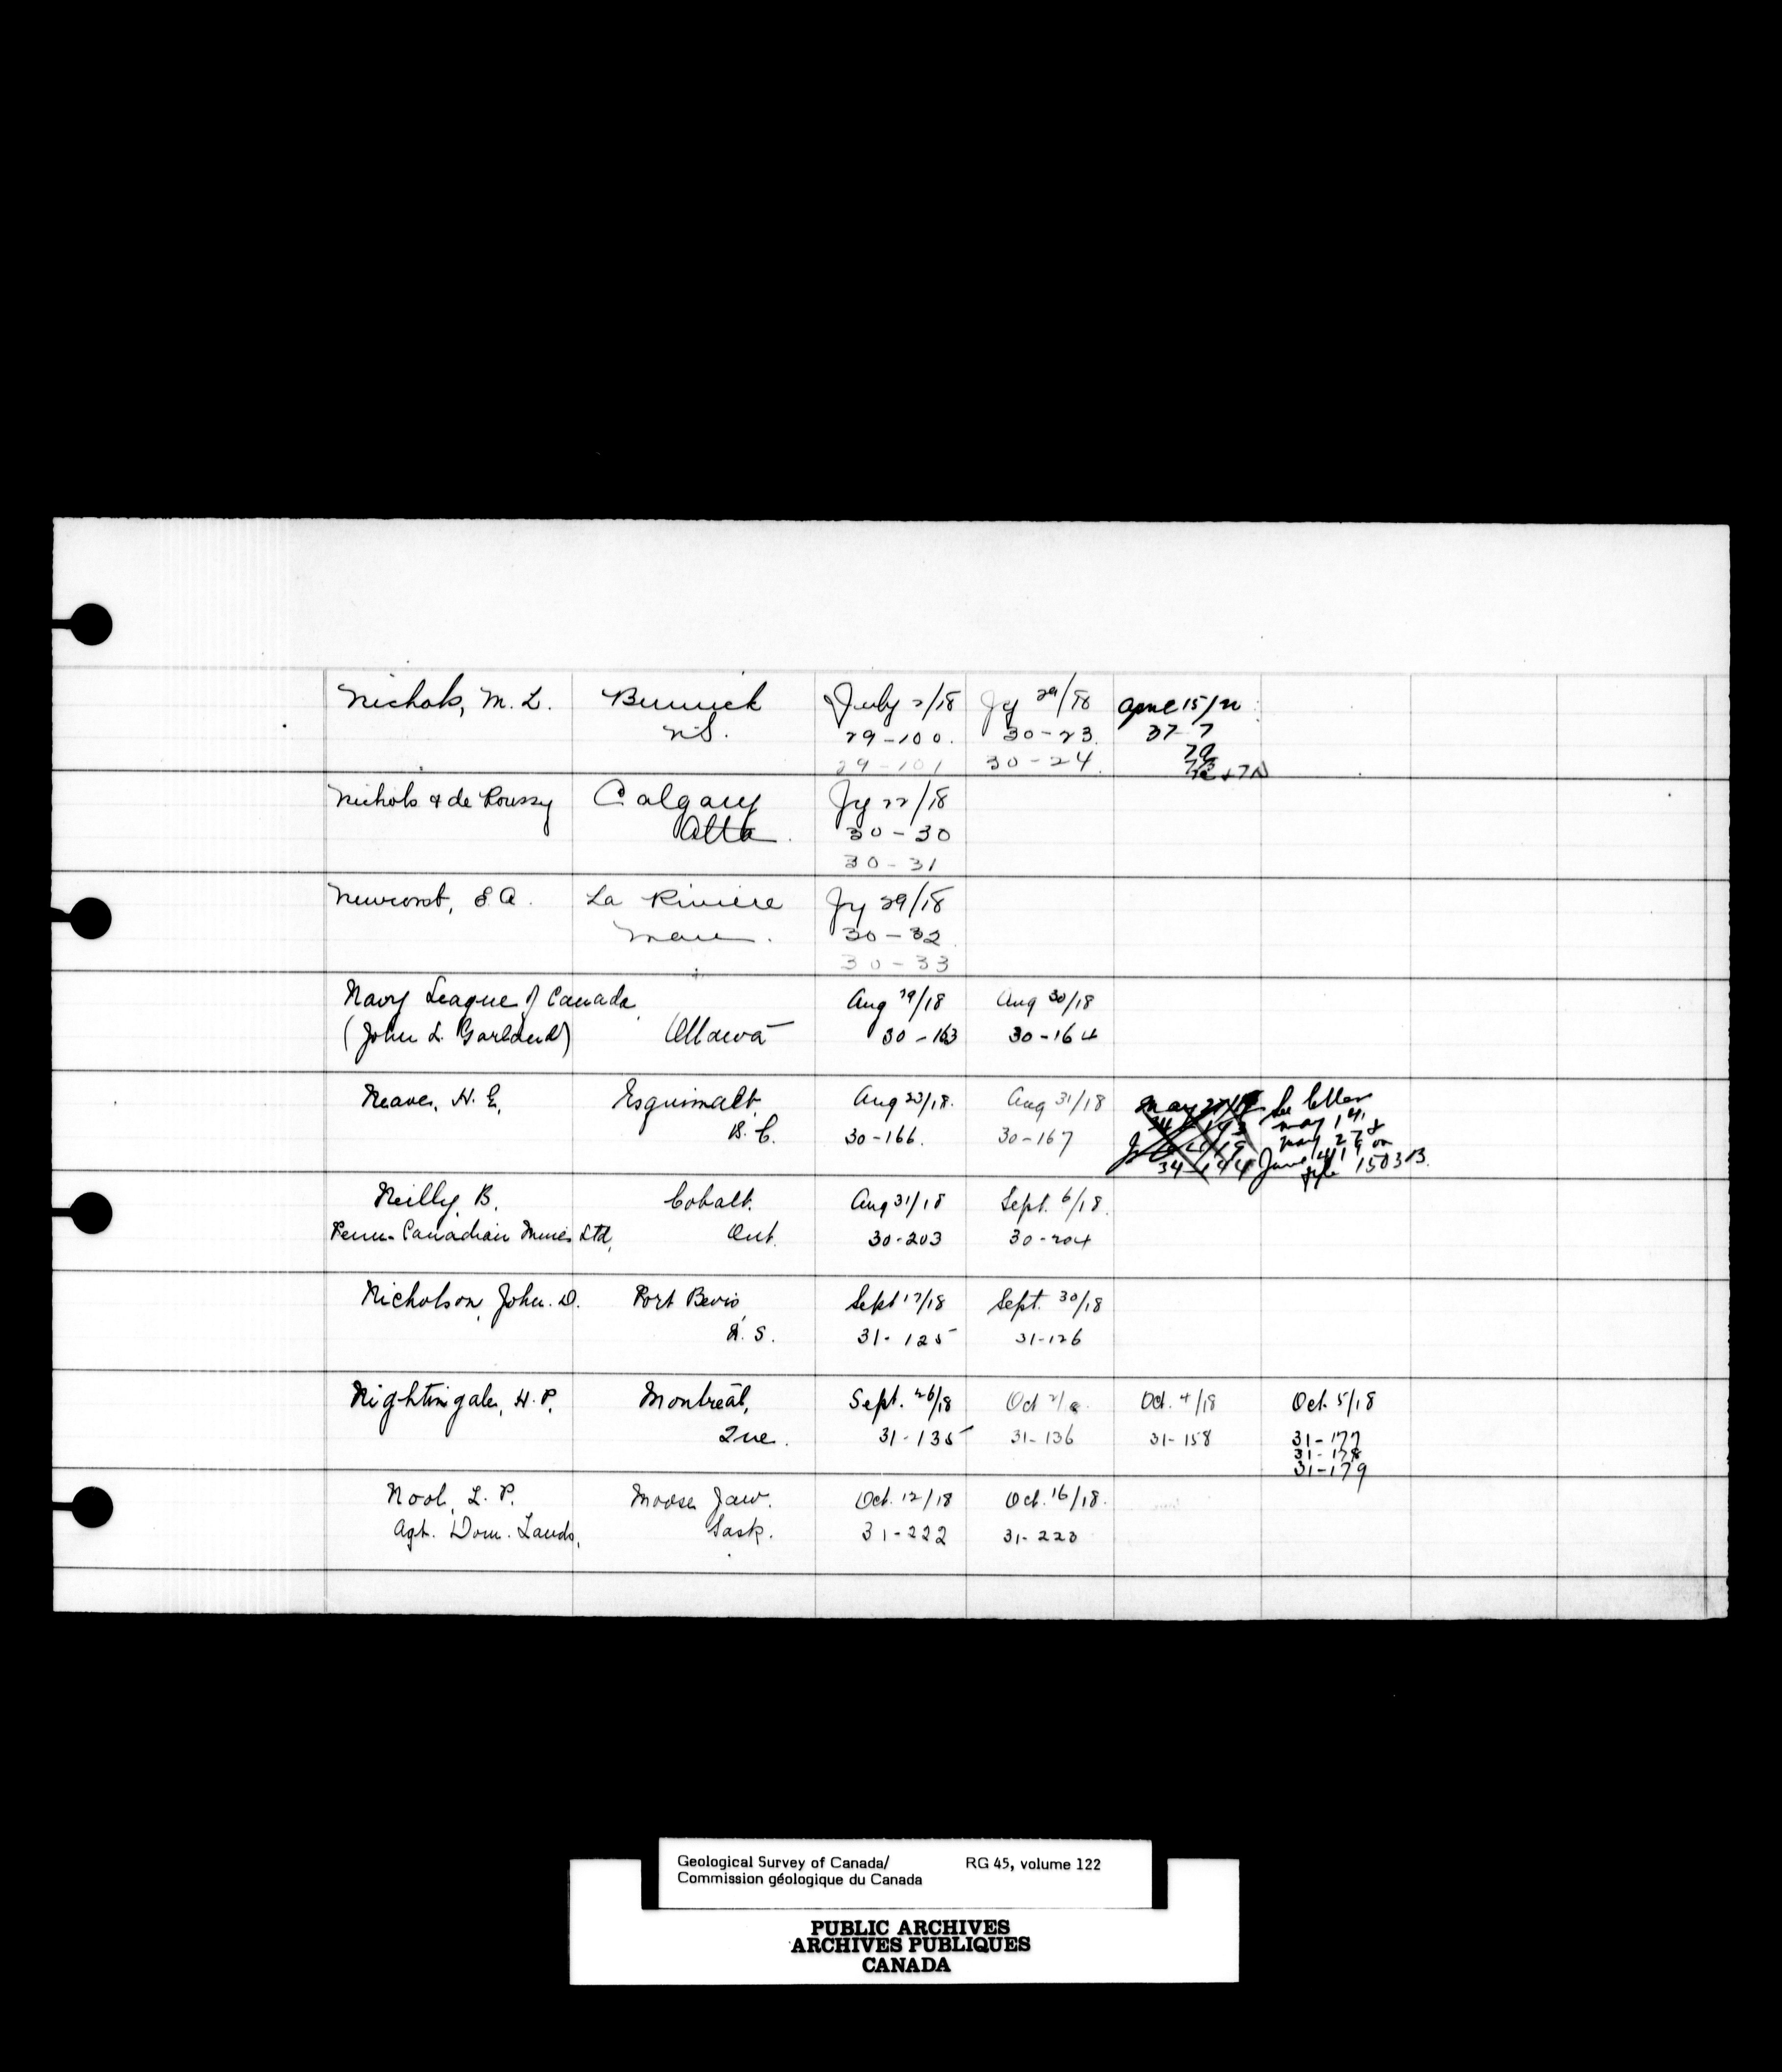 Nichols, M. L. Berwick July 2/18 Jy 29/18 April 15/20
N.S. 29-100. 30-23. 37-7
29-101 30-24. 7a
Nichols & de Roussy Calgary Jy 22/18
Alta. 30-30
30-31
E A. La Riviere Jy 29/18
Man. 30-32
30-33
Navy League of Canada, Aug 29/18 Aug 30/18
(John L. Garland) Ottawa 30-163 30-164
Neaves, H. E, Esquimalt, Aug 23/18. Aug 31/18 May See letters
B. C. 30-166. 30-167 may 14,
may 27 & on
34-144 June 4/19
file 150313.
Neilly, B. Cobalt. Aug 31/18 Sept. 6/18.
Penn-Canadian Mines Ltd, Ont. 30-203 30-204
Nicholson, John. D. Port Bevis, Sept 17/18 Sept. 30/18
N. S. 31-125 31-126
Nightingale, H. P. Montreal, Sept. 26/18 Oct Oct. 4/18 Oct. 5/18
Que. 31-135 31-136 31-158 31-177
31-178
31-179
Nool, L. P. Moose Jaw. Oct. 12/18 Oct. 16/18.
Agt. Dom. Lands, Sask. 31-222 31-223
Geological Survey of Canada/ RG 45, volume 122
Commission géologique du Canada
PUBLIC ARCHIVES
ARCHIVES PUBLIQUES
CANADA